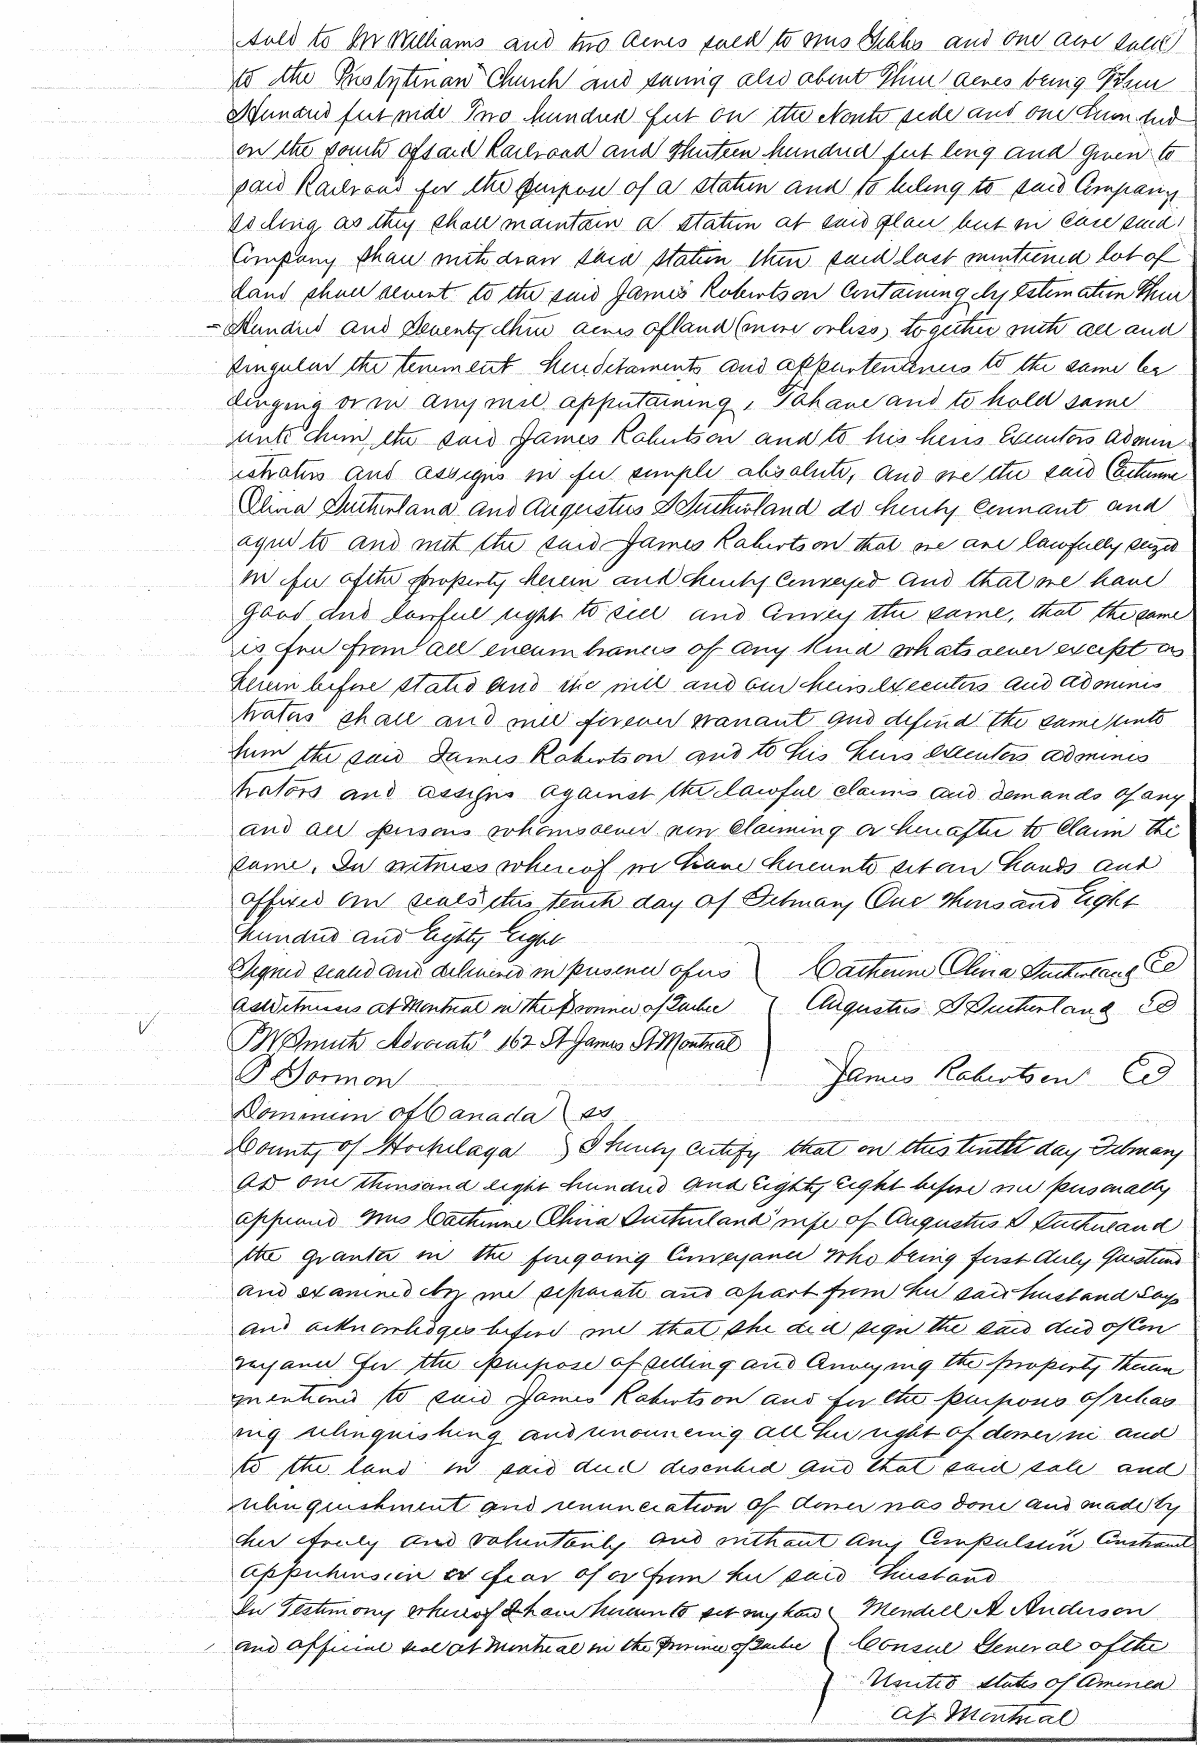 sold to Mr Williams and two acres sold to Mrs Gibbs and one acre sold
to the Presbyterian Church and saving also about Three acres being Three
Hundred feet wide Two hundred feet on the North side and one hundred
on the south of said Railroad and Thirteen hundred feet long and given to
said Railroad for the purpose of a station and to belong to said Company
so long as they shall maintain a station at said place but in case said
Company shall withdraw said station then said last mentioned lot of
land shall revert to the said James Robertson Containing by estimation Three
Hundred and Seventy three acres of land (more or less) together with all and
singular the tenement hereditaments and appurtenances to the same be
longing or in any wise appertaining, To have and to hold same
unto him, the said James Robertson and to his heirs Executors admin
istrators and assigns in fee simple absolute, and we the said Catherine
Olivia Sutherland and Augustus S Sutherland do hereby Covenant and
agree to and with the said James Robertson that we are lawfully seized
in fee of the property herein and hereby Conveyed and that we have
good and lawful right to sell and Convey the same, that the same
is free from all encumbrances of any kind whatsoever except as
herein before stated and we will and our heirs executors and adminis
trators shall and will forever warrant and defend the same unto
him the said James Robertson and to his heirs executors adminis
trators and assigns against the lawful claims and demands of any
and all persons whomsoever now claiming or hereafter to claim the
same. In witness whereof we have hereunto set our hands and
affixed our seals this tenth day of February One thousand Eight
hundred and Eighty Eight
Signed sealed and delivered in presence of us } Catherine Olivia Sutherland
as Witnesses at Montreal in the Province of Quebec Augustus S Sutherland
Advocate" 162 St James St Montreal
P Gormon James Robertson
Dominion of Canada } ss
County of Hochelaga } I hereby certify that on this tenth day February
AD one thousand eight hundred and Eighty eight before me personally
appeared Mrs Catherine Olivia Sutherland wife of Augustus S Sutherland
the grantor in the foregoing Conveyance who being first duly Questioned
and examined by me separate and apart from her said husband says
and acknowledges before me that she did sign the said deed of Con
veyance for the purpose of selling and Conveying the property therein
mentioned to said James Robertson and for the purposes of releas
ing relinquishing and renouncing all her right of dower in and
to the land in said deed described and that said sale and
relinquishment and renunciation of dower was done and made by
her freely and voluntarily and without any Compulsion Constraint
apprehension or fear of or from her said husband
In Testimony whereof I have hereunto set my hand { Wendell A Anderson
and official seal at Montreal in the Province of Quebec { Consul General of the
United states of America
at Montreal